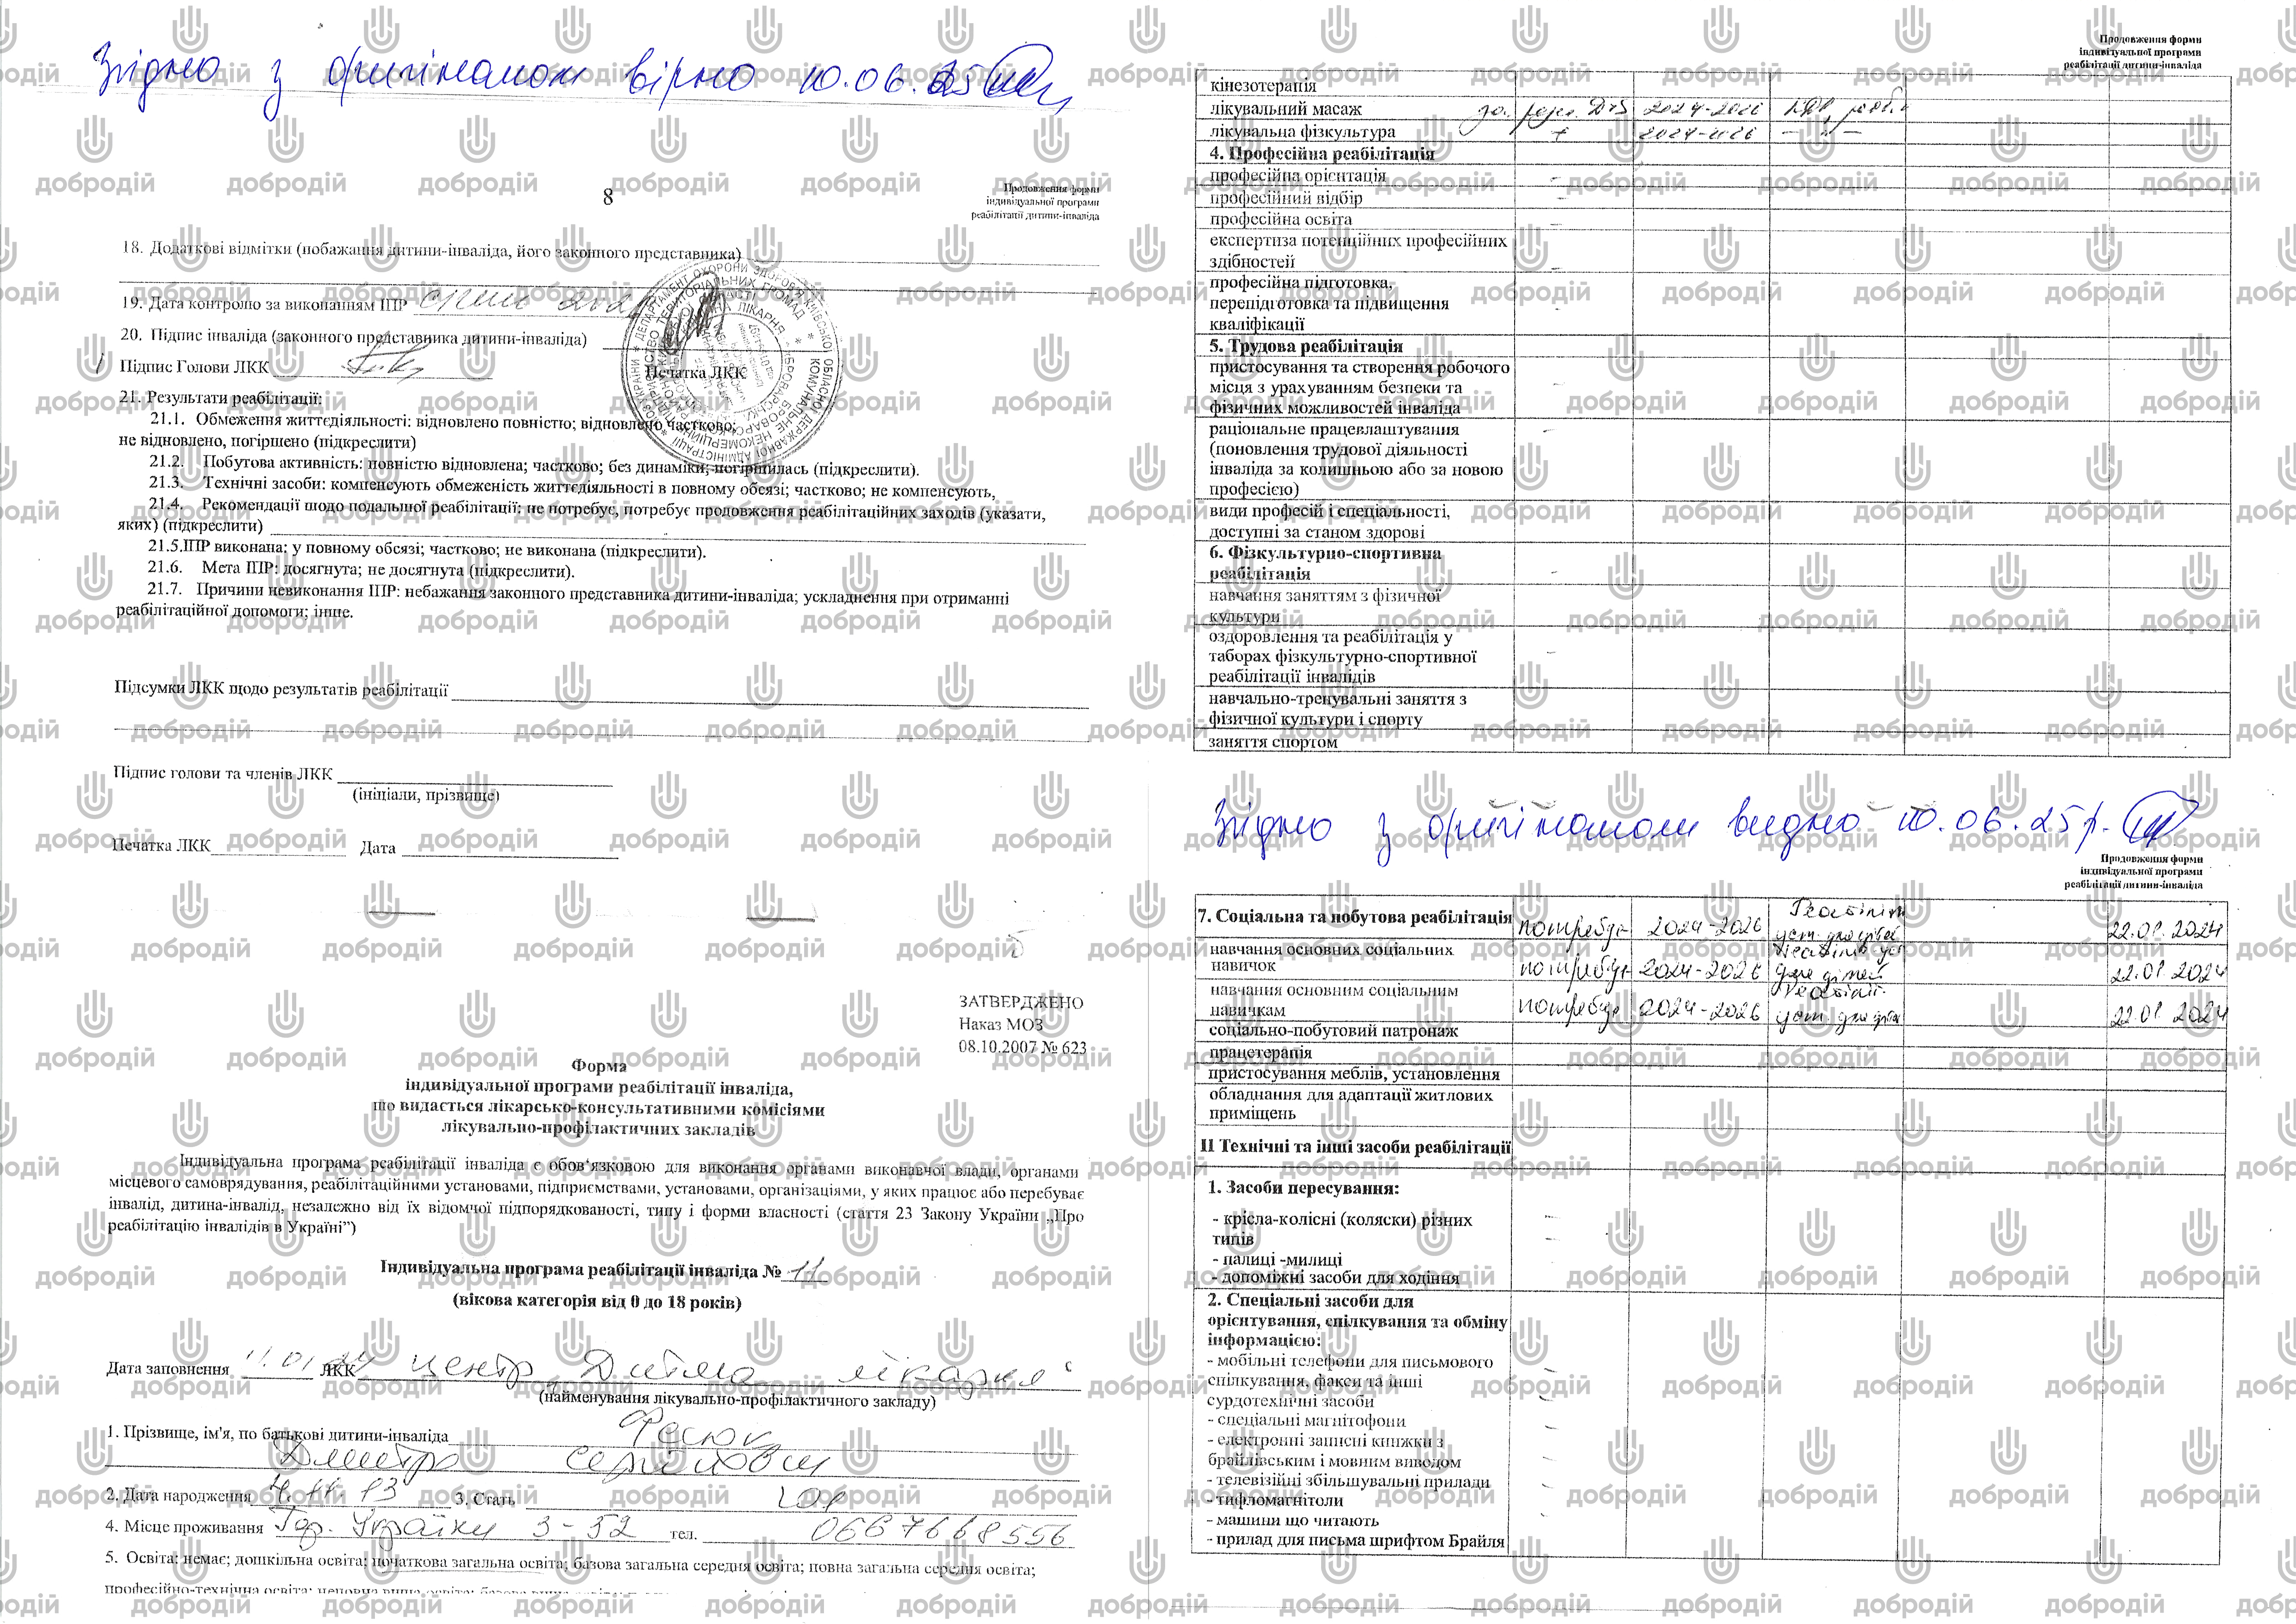 Згідно з оригіналом вірно 10.06.25
8
Продовження форми
індивідуальної програми
реабілітації дитини-інваліда
18. Додаткові відмітки (побажання дитини-інваліда, його законного представника)
19. Дата контролю за виконанням ІПР
20. Підпис інваліда (законного представника дитини-інваліда)
Підпис Голови ЛКК
Печатка ЛКК
21. Результати реабілітації:
21.1. Обмеження життєдіяльності: відновлено повністю; відновлено частково;
не відновлено, погіршено (підкреслити)
21.2. Побутова активність: повністю відновлена; частково; без динаміки; погіршилась (підкреслити).
21.3. Технічні засоби: компенсують обмеженість життєдіяльності в повному обсязі; частково; не компенсують,
21.4. Рекомендації щодо подальшої реабілітації: не потребує, потребує продовження реабілітаційних заходів (указати,
яких) (підкреслити)
21.5.ІПР виконана: у повному обсязі; частково; не виконана (підкреслити).
21.6. Мета ІПР: досягнута; не досягнута (підкреслити).
21.7. Причини невиконання ІПР: небажання законного представника дитини-інваліда; ускладнення при отриманні
реабілітаційної допомоги; інше.
Підсумки ЛКК щодо результатів реабілітації
Підпис голови та членів ЛКК
(ініціали, прізвище)
Печатка ЛКК Дата
ЗАТВЕРДЖЕНО
Наказ МОЗ
08.10.2007 № 623
Форма
індивідуальної програми реабілітації інваліда,
що видається лікарсько-консультативними комісіями
лікувально-профілактичних закладів
Індивідуальна програма реабілітації інваліда є обов'язковою для виконання органами виконавчої влади, органами
місцевого самоврядування, реабілітаційними установами, підприємствами, установами, організаціями, у яких працює або перебуває
інвалід, дитина-інвалід, незалежно від їх відомчої підпорядкованості, типу і форми власності (стаття 23 Закону України „Про
реабілітацію інвалідів в Україні”)
Індивідуальна програма реабілітації інваліда № 11
(вікова категорія від 0 до 18 років)
Дата заповнення 11.01.24 ЛКК центр Дитяча лікарня"
(найменування лікувально-профілактичного закладу)
1. Прізвище, ім'я, по батькові дитини-інваліда Фесюк
Дмитро Сергійович
2. Дата народження 4.11.13 3. Стать
4. Місце проживання Українки 3-52 тел. 0667668556
5. Освіта: немає; дошкільна освіта; початкова загальна освіта; базова загальна середня освіта; повна загальна середня освіта;
професійно-технічна освіта; неповна вища освіта;
Продовження форми
індивідуальної програми
реабілітації дитини-інваліда
кінезотерапія
лікувальний масаж 2024-2026
лікувальна фізкультура + 2024-2026 — " —
4. Професійна реабілітація
професійна орієнтація -
професійний відбір -
професійна освіта -
експертиза потенційних професійних
здібностей -
професійна підготовка,
перепідготовка та підвищення -
кваліфікації
5. Трудова реабілітація
пристосування та створення робочого
місця з урахуванням безпеки та -
фізичних можливостей інваліда
раціональне працевлаштування -
(поновлення трудової діяльності
інваліда за колишньою або за новою
професією)
види професій і спеціальності,
доступні за станом здорові
6. Фізкультурно-спортивна
реабілітація -
навчання заняттям з фізичної
культури
оздоровлення та реабілітація у
таборах фізкультурно-спортивної -
реабілітації інвалідів
навчально-тренувальні заняття з
фізичної культури і спорту
заняття спортом
Згідно з оригіналом видно 10.06.25р.
Продовження форми
індивідуальної програми
реабілітації дитини-інваліда
7. Соціальна та побутова реабілітація потребує 2024-2026 22.01.2024
навчання основних соціальних
навичок потребує 2024-2026 для дітей 22.01 2024
навчання основним соціальним
навичкам потребує 2024-2026 22.01 2024
соціально-побутовий патронаж
працетерапія
пристосування меблів, установлення
обладнання для адаптації житлових
приміщень
ІІ Технічні та інші засоби реабілітації
1. Засоби пересування:
- крісла-колісні (коляски) різних
типів
- палиці -милиці
- допоміжні засоби для ходіння
2. Спеціальні засоби для
орієнтування, спілкування та обміну
інформацією:
- мобільні телефони для письмового
спілкування, факси та інші
сурдотехнічні засоби
- спеціальні магнітофони
- електронні записні книжки з
брайлівським і мовним виводом
- телевізійні збільшувальні прилади
- тифломагнітоли
- машини що читають
- прилад для письма шрифтом Брайля
добродій